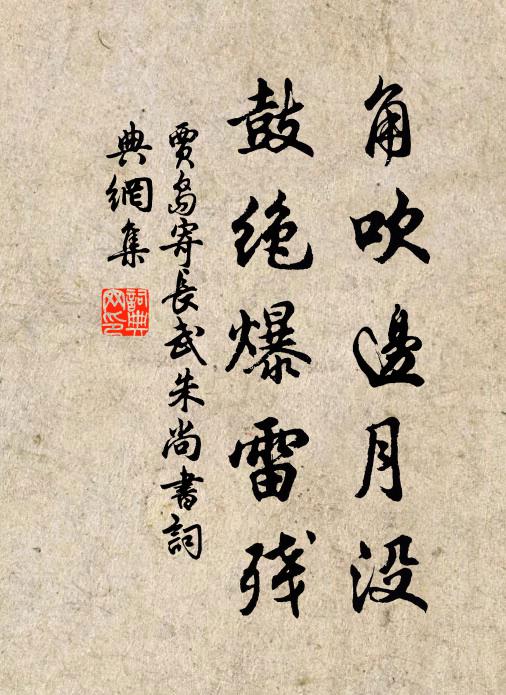 角吹邊月没
鼓绝爆雷残
賈島寄長武朱尚書詞
典網集
詞典
网印